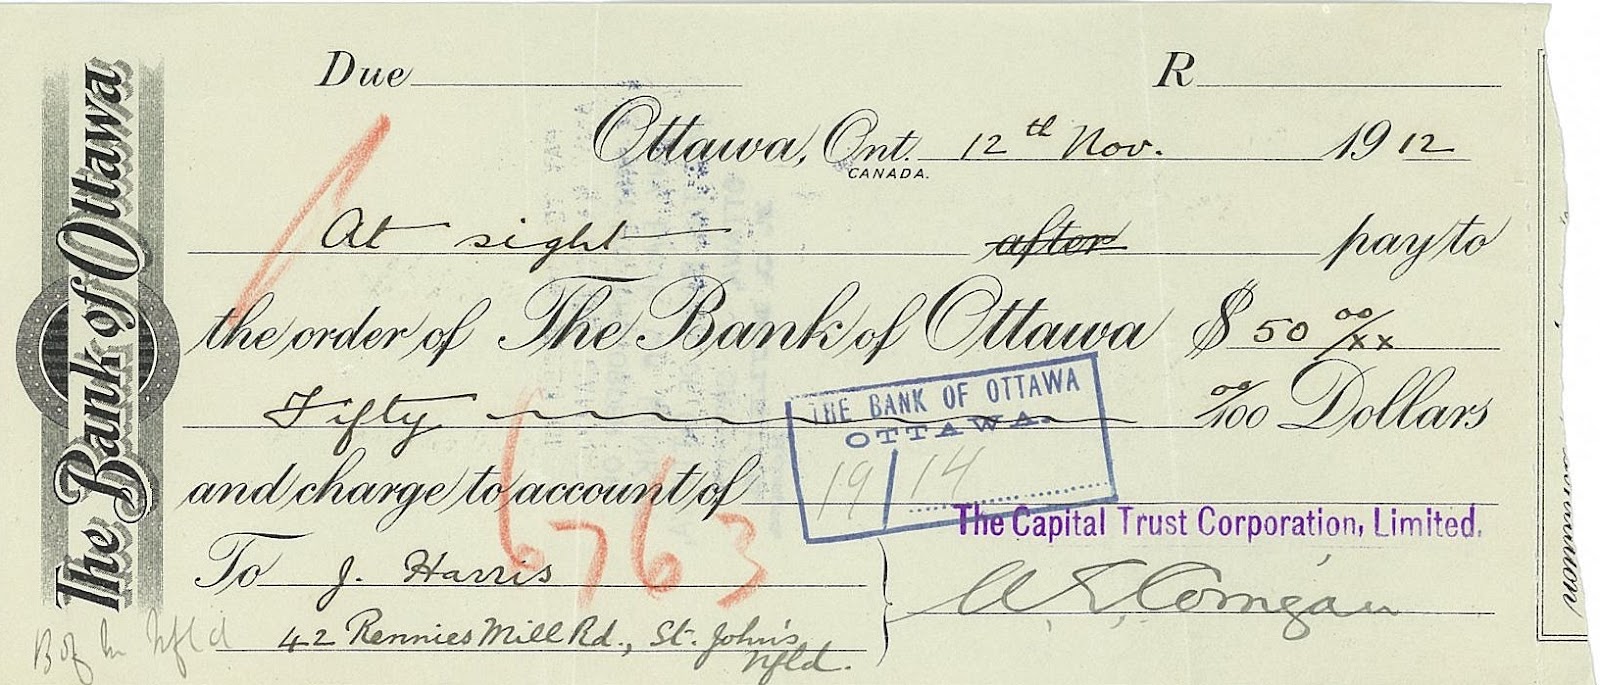 The Bank of Ottawa
Due R
Ottawa, Ont. 12th Nov. 1912
CANADA.
At sight after pay to
the order of The Bank of Ottawa $ 50 00/xx
Fifty 00/100 Dollars
THE BANK OF OTTAWA
OTTAWA.
19 14
and charge to account of
The Capital Trust Corporation, Limited.
6763
To J. Harris
42 Rennies Mill Rd., St. John's
Nfld.
B of M Nfld
Corrigan